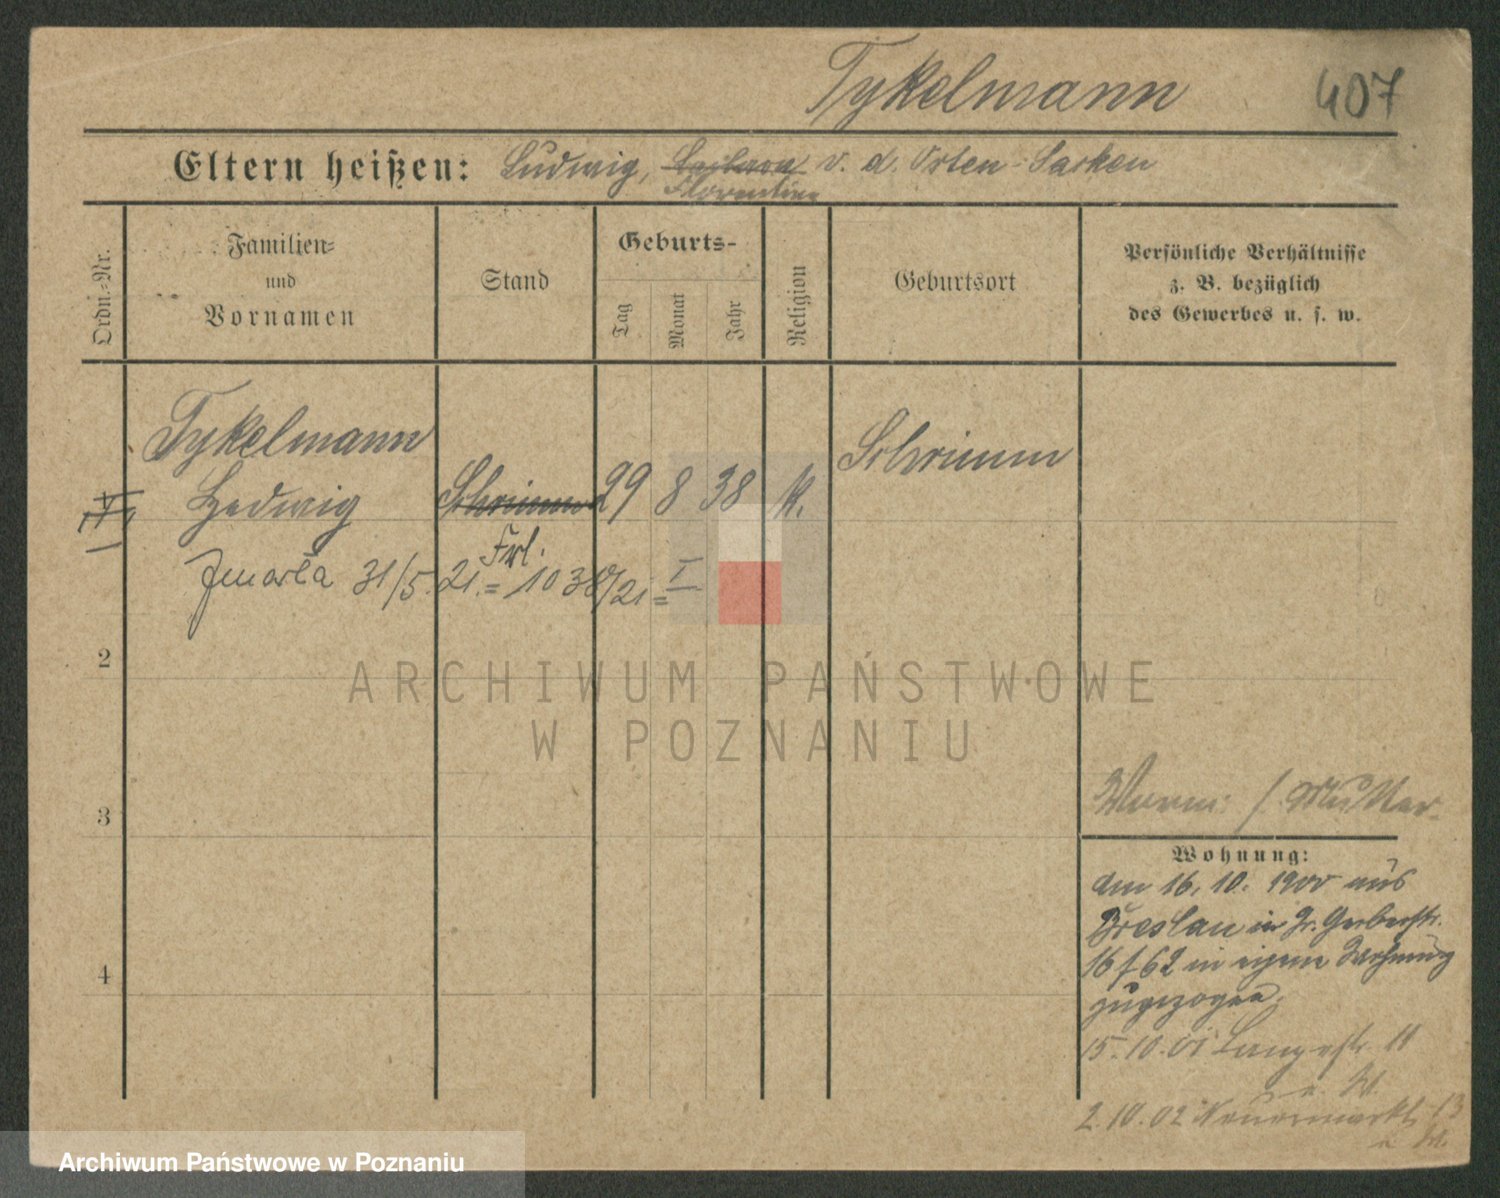 Tykelmann 407
Eltern heißen: Ludwig, v. d. Osten-Sacken
Florentine
Ordn.-Nr.
Familien-
und
Vornamen
Stand
Geburts-
Tag
Monat
Jahr
Religion
Geburtsort
Persönliche Verhältnisse
z. B. bezüglich
des Gewerbes u. s. w.
Tykelmann
Hedwig
Schrimm 29 8 38 k. Schrimm
Frl.
Zmarła 31/5. 21. = 1038/21 = I
2
ARCHIWUM PAŃSTWOWE
W POZNANIU
3
Mutter
Wohnung:
am 16. 10. 1900 aus
Breslau in Gr. Gerberstr.
16 f 62 in eigene Wohnung
4
zugezogen.
15. 10. 01 Langestr. 11
e. W.
2. 10. 02 Neuermarkt 13
e. W.
Archiwum Państwowe w Poznaniu